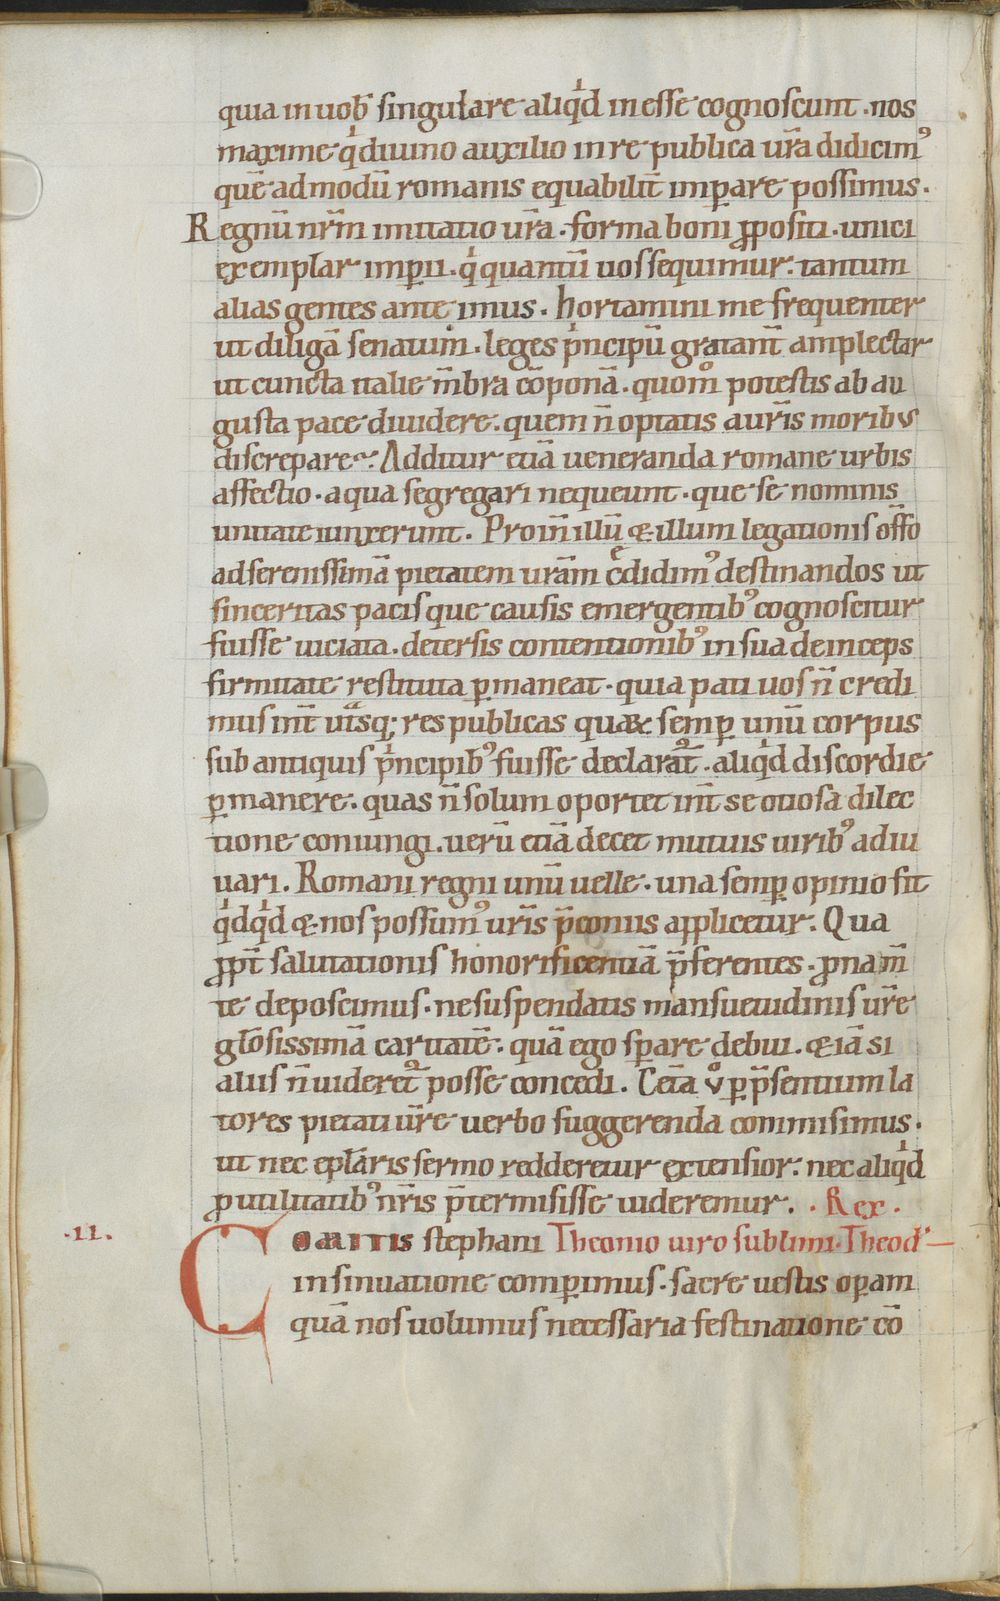 quia in uob̄ singulare aliqͥd inesse cognoscunt . nos
maxime qͥ diuino auxilio in re publica ur̄a didicimꝰ
quē ad modū romanis equabilit̄ imꝑare possimus .
Regnū nr̄m imitatio ur̄a . forma boni ꝓpositi . unici
exemplar imꝑii . qͥ quantū uos sequimur . tantum
alias gentes ante imus . hortamini me frequenter
ut diligā senatum . leges pͥncipū gratant̄ amplectar
ut cuncta italie m̄bra cōponā . quomͦ potestis ab au
gusta pace diuidere . quem n̄ optatis aur̄is moribus
discrepare . Additur etiā ueneranda romane urbis
affectio . a qua segregari nequeunt . que se nominis
unitate iunxerunt . Proin̄ illū & illum legationis off̄o
ad serenissimā pietatem ur̄am c̄didimꝰ destinandos ut
sinceritas pacis que causis emergentibꝰ cognoscitur
fuisse uiciata . detersis contentionibꝰ in sua deinceps
firmitate restituta ꝑmaneat . quia pati uos n̄ credi
mus int̄ utͣsq; res publicas quaꝝ semꝑ unū corpus
sub antiquis pͥncipibꝰ fuisse declarat̄ . aliqͥd discordie
ꝑmanere . quas n̄ solum oportet int̄ se otiosa dilec
tione coniungi . uerū etiā decet mutuis uiribꝰ adiu
uari . Romani regni unū uelle . una semꝑ opinio sit
qͥdqͥd & nos possumꝰ ur̄is p̄coniis applicetur . Qua
ꝓpt̄ salutationis honorificentiā p̄ferentes . ꝓna m̄
te deposcimus . ne suspendatis mansuetudinis ur̄e
gl̄osissimā caritatē . quā ego sꝑare debui . & iā si
aliis n̄ uideret̄ posse concedi . Cet̄a uͦ ꝑ p̄sentium la
tores pietati ur̄e uerbo suggerenda commisimus .
ut nec epl̄aris sermo redderetur extensior . nec aliqͥd
ꝓ utilitatibꝰ nr̄is p̄termisisse uideremur . . Rex .
.II. Comitis stephani Theonio uiro sublimi . Theod̄
insinuatione comꝑimus . sacre uestis oꝑam
quā nos uolumus necessaria festinatione cō